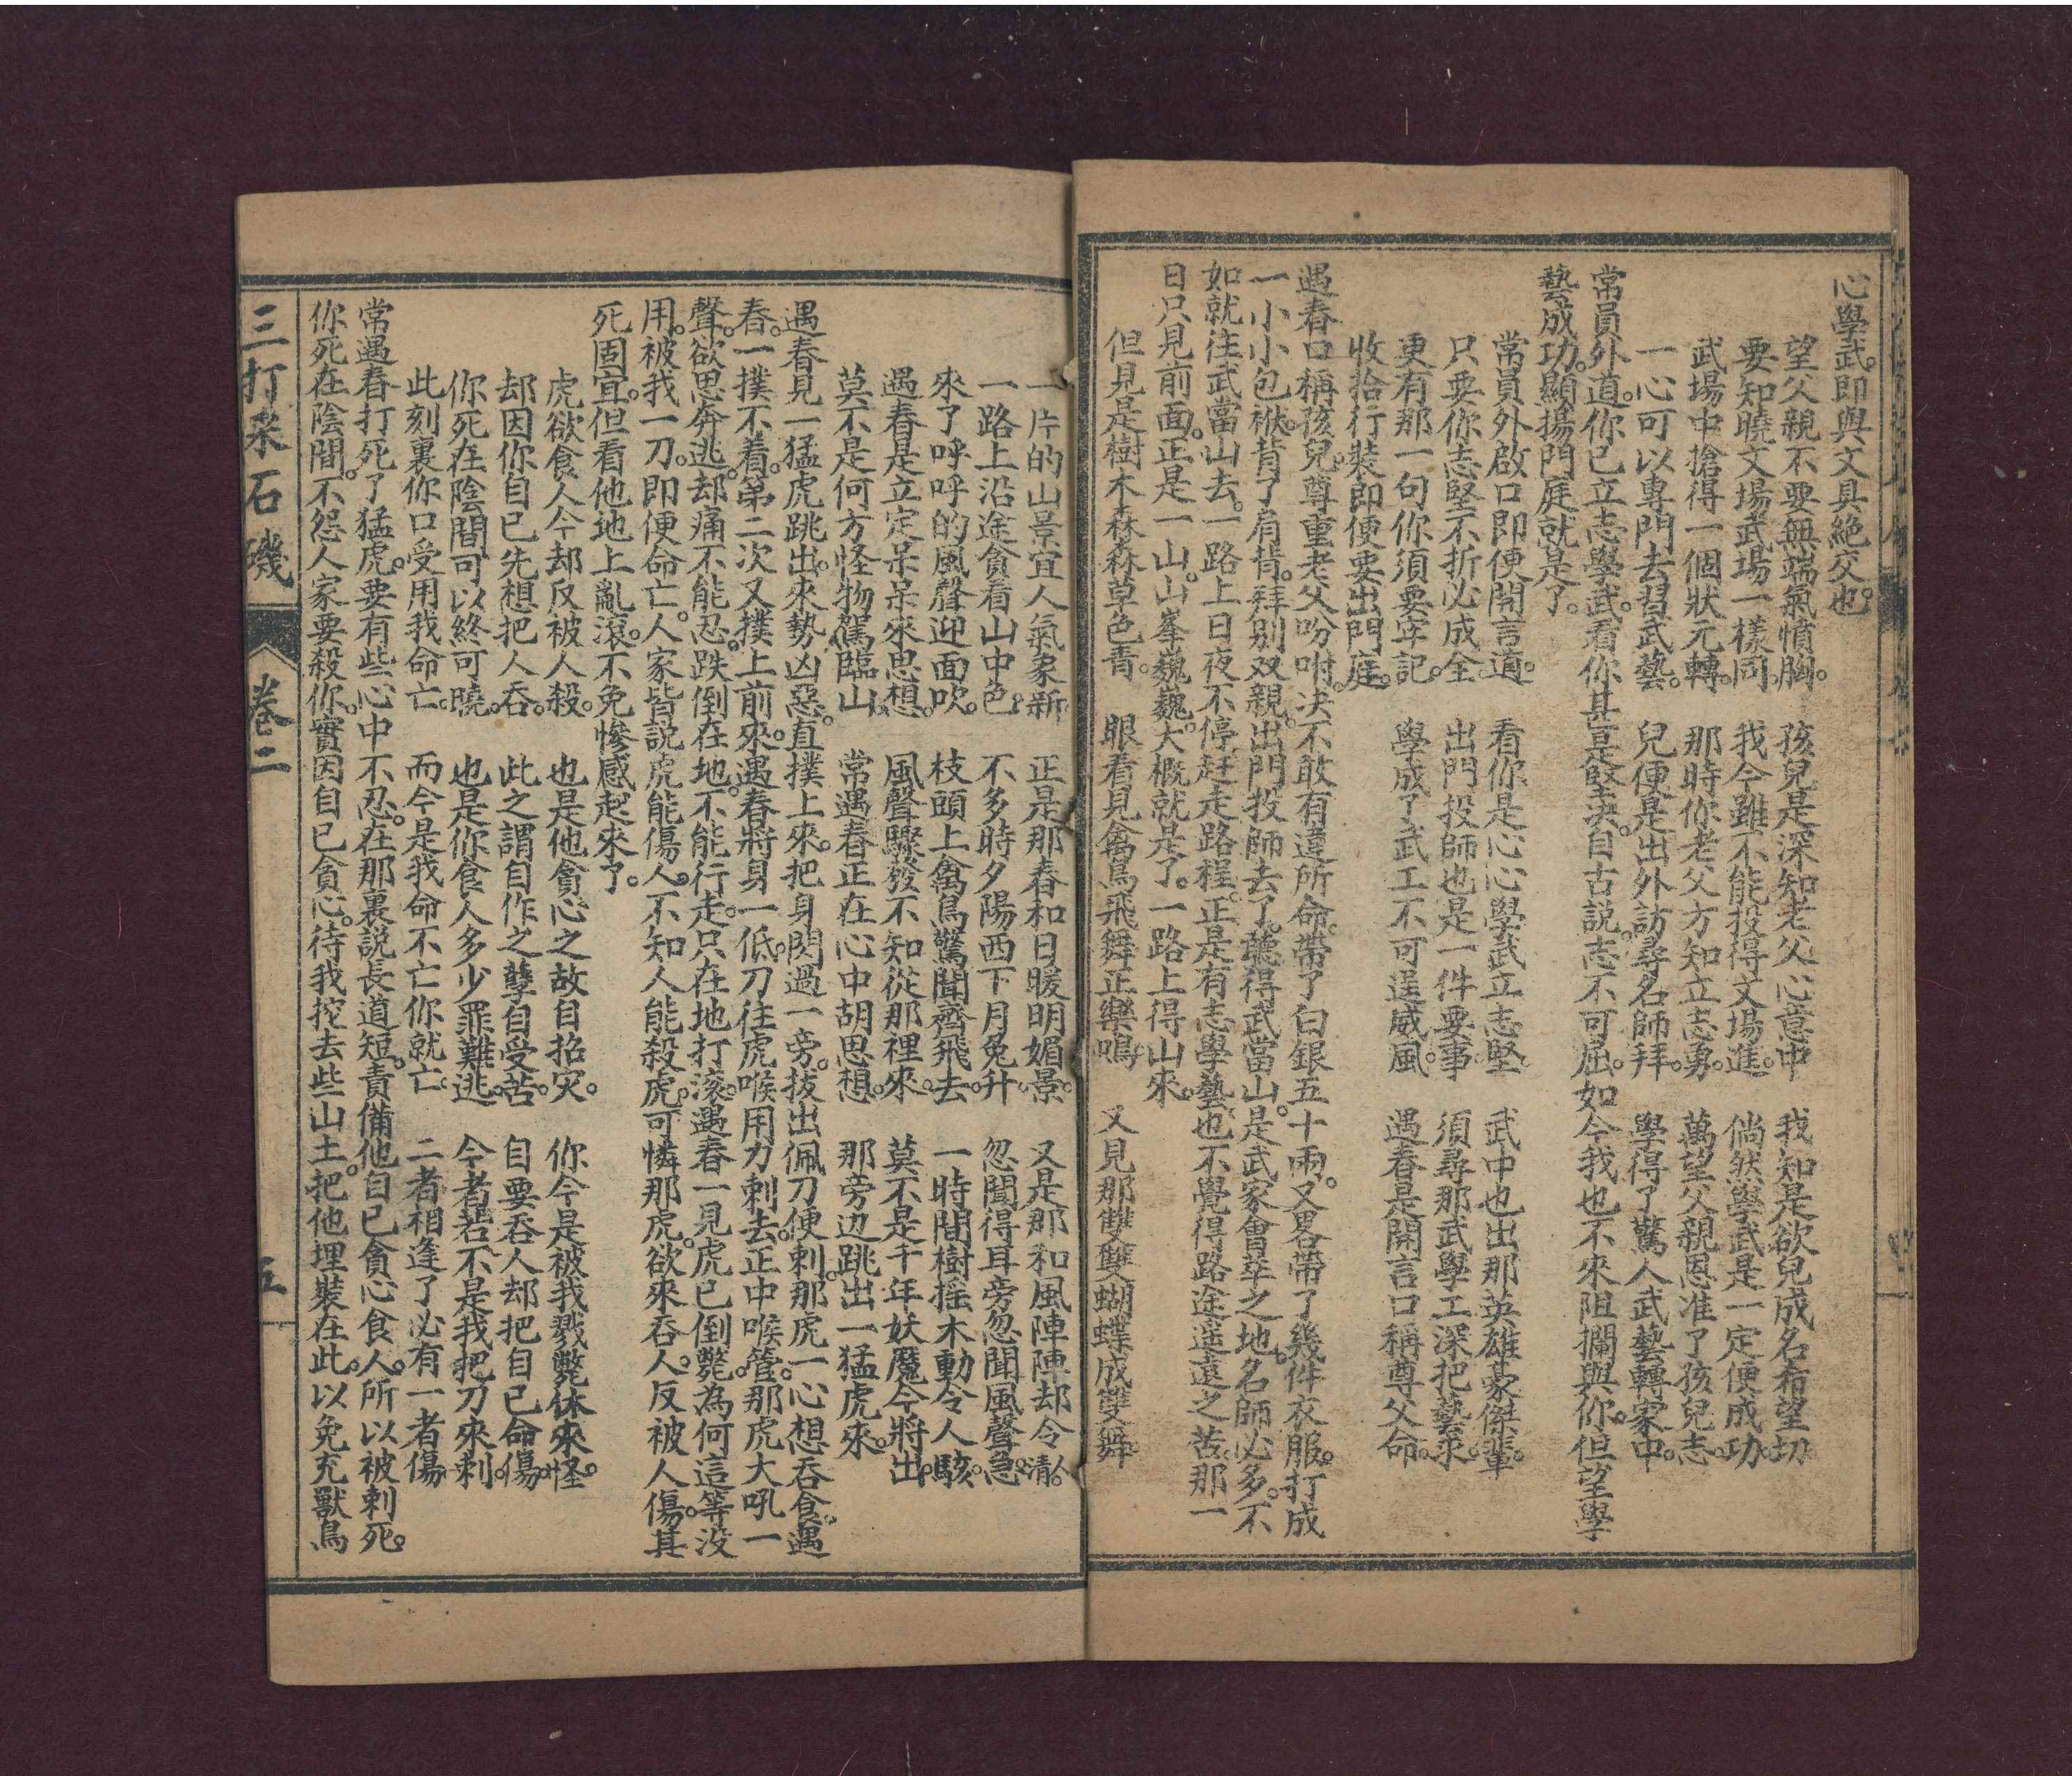 心學武。即與文具絶交也。
望父親不要無端氣憤胸。　孩兒是深知老父心意中　我知是欲兒成名希望切
要知曉文場武場一樣同。　我今雖不能投得文場進。　倘然學武是一定便成功
武場中搶得一個狀元轉。　那時你老父方知立志勇。　萬望父親恩准了孩兒志。
一心可以專門去習武藝。　兒便是出外訪尋名師拜。　學得了驚人武藝轉家中。
常員外道。你已立志學武。看你甚是堅決。自古説。志不可屈。如今我也不來阻攔與你。但望學
藝成功。顯揚門庭就是了。
常員外啟口即便開言道。　看你是心心學武立志堅　武中也出那英雄豪傑輩。
只要你志堅不折必成全。　出門投師也是一件要事　須尋那武學工深把藝求。
更有那一句你須要牢記。　學成了武工不可逞威風。　遇春是開言口稱尊父命。
收拾行裝即便要出門庭。
遇春口稱孩兒。尊重老父吩咐。决不敢有違所命。帶了白銀五十兩。又畧帶了幾件衣服。打成
一小小包袱。背了肩背。拜别双親。出門投師去了。聽得武當山。是武家會萃之地。名師必多。不
如就往武當山去。一路上日夜不停。趕走路程。正是有志學藝。也不覺得路途遥遠之苦。那一
日只見前面。正是一山。山峯巍巍。大概就是了。一路上得山來。
但見是樹木森森草色青。　眼看見禽鳥飛舞正樂鳴　又見那雙雙蝴蝶成雙舞。
一片的山景宜人氣象新　正是那春和日暖明媚景。　又是那和風陣陣却令人清。
一路上沿途貪看山中色。　不多時夕陽西下月兔升。　忽聞得耳旁忽聞風聲急。
來了呼呼的風聲迎面吹。　枝頭上禽鳥驚聞齊飛去。　一時間樹摇木動令人駭。
遇春是立定呆呆來思想。　風聲驟發不知從那裡來。　莫不是千年妖魔今將出。
莫不是何方怪物駕臨山。　常遇春正在心中胡思想。　那旁边跳出一猛虎來。
遇春見一猛虎跳出。來勢凶惡。直撲上來。把身閃過一旁。拔出佩刀便刺。那虎一心想吞食。遇
春。一撲不着。第二次又撲上前來。遇春將身一低。刀往虎喉用力刺去。正中喉管。那虎大吼一
聲。欲思奔逃。却痛不能忍。跌倒在地。不能行走。只在地打滚。遇春一見虎已倒斃。為何這等没
用。被我一刀。即便命亡。人家皆説虎能傷人。不知人能殺虎。可憐那虎。欲來吞人。反被人傷。其
死固宜。但看他地上亂滾。不免慘感起來了。
虎欲食人今却反被人殺。　也是他貪心之故自招灾。　你今是被我戮斃休來怪。
却因你自已先想把人吞。　此之謂自作之孽自受苦。　自要吞人却把自已命傷。
你死在陰間可以終可曉。　也是你食人多少罪難逃。　今者若不是我把刀來刺。
此刻裏你口受用我命亡。　而今是我命不亡你就亡。　二者相逢了必有一者傷
常遇春打死了猛虎。要有些心中不忍。在那裏説長道短。責備他自已貪心食人。所以被刺死。
你死在陰間。不怨人家要殺你。實因自已貪心。待我挖去些山土。把他埋裝在此。以免充獸鳥
三打采石磯
卷二
五